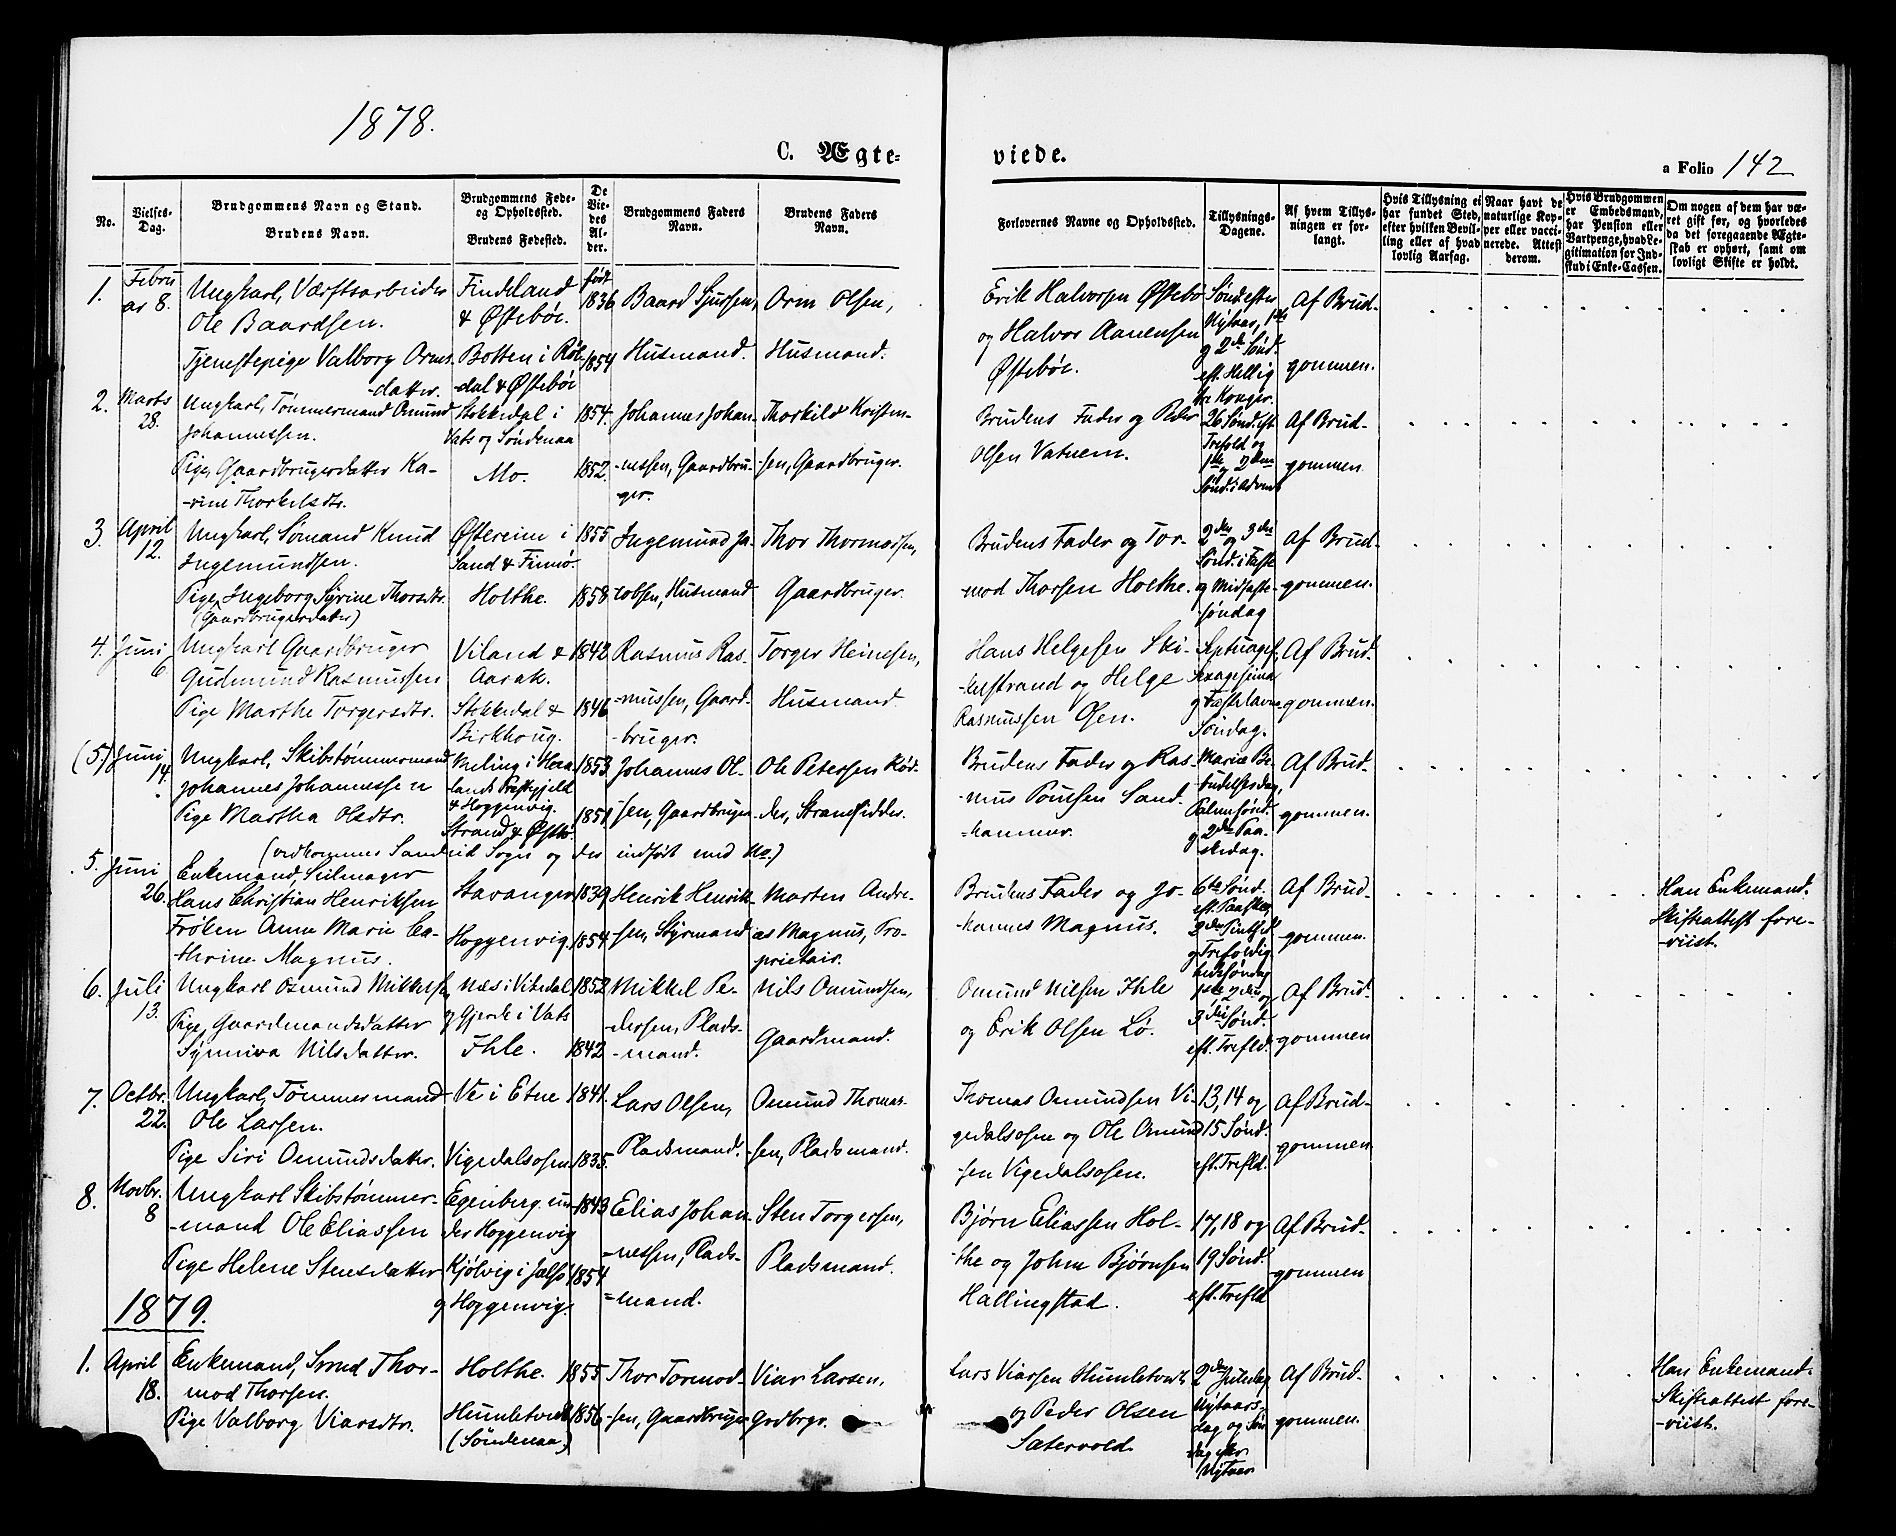 1878.
C. Ægte-
viede.
a Folio 142
No.
Vielses-
Dag.
Brudgommens Navn og Stand.
Brudens Navn.
Brudgommens Føde-
og Opholdsted.
Brudens Fødested.
De
Vie-
des
Al-
der.
Brudgommens Faders
Navn.
Brudens Faders
Navn.
Forlovernes Navne og Opholdssted.
Tillysnings-
Dagene.
Af hvem Tillys-
ningen er for-
langt.
Hvis Tillysning ei
har fundet Sted,
efter hvilken Bevil-
ling eller af hvad
lovlig Aarsag.
Naar havt de
naturlige Kop-
per eller vacci-
nerede. Attest
derom.
Hvis Brudgommen
er Embedsmand,
har Pension eller
Vartpenge, hvad Le-
gitimation for Ind-
skud i Enke-Cassen.
Om nogen af dem har væ-
ret gift før, og hvorledes
da det foregaaende Ægte-
skab er ophørt, samt om
lovligt Skifte er holdt.
1.
Febru
ar 8.
Ungkarl, Værftsarbeider
Ole Baardsen.
Tjenestepige Valborg Orms-
-datter.
Findeland
& Østebøe.
Botten i Røl-
-dal & Østebøe
født
1836
1854
Baard Sjursen,
Husmand.
Orm Olsen,
Husmand.
Erik Halvorsen Østebø
og Halvor Aanensen
Østebøe.
Sønd. efter
Nytaar, 1ste
og 2den Sønd.
eft. Hellig
tre Konger.
Af Brud-
gommen.
2.
Marts
28.
Ungkarl, Tømmermand Omund
Johannessen.
Pige, Gaardbrugerdatter Ka-
-rine Thorkelsdtr.
Stokkedal i
Vats og Søndenaa
Mo.
1854.
1852.
Johannes Johan-
-nessen, Gaardbru-
-ger.
Thorkild Kristen-
-sen, Gaardbruger.
Brudens Fader og Peder
Olsen Vatnem.
26 Sønd. eft.
Trefold og
1ste og 2den
Sønd. i Advent
Af Brud-
gommen
3.
April
12.
Ungkarl, Sømand Knud
Ingemundsen.
Pige, Ingeborg Syrine Thorsdtr.
(Gaardbrugerdatter)
Østereim i
Sand & Finnø
Holthe.
1855
1858
Ingemund Ja-
-cobsen, Husmand
Thor Thormodsen,
Gaardbruger.
Brudens Fader og Tor-
-mod Thorsen Holthe.
2den og 3die
Sønd. i Faste
og Midfaste-
søndag
Af Brud-
gommen.
4.
Juni
6
Ungkarl Gaardbruger
Gudmund Rasmussen
Pige Marthe Torgersdtr.
Viland &
Aarak.
Stokkedal &
Birkhoug.
1842
1846
Rasmus Ras-
-mussen, Gaard-
-bruger.
Torger Heinesen,
Husmand.
Hans Helgesen Ski-
-kestrand og Helge
Rasmussen Øen.
Septuages.
Sexagesima
og Fastelavns
Søndag.
Af Brud-
gommen.
(5.)
Juni
14.
Ungkarl, Skibstømmermand
Johannes Johannessen
Pige Martha Olsdtr.
Meling i Hera
-lands Præstegjeld
& Hoggenvig.
Strand & Østbø
1853
1851
Johannes Ol-
-sen, Gaardbruger
Ole Petersen Rød-
-der, Strandsidder.
Brudens Fader og Ras-
-mus Poulsen Sand-
-hammer.
Mariæ Be-
budelsesdag,
Palmesønd.
og 2den Paa-
skedag.
Af Brud-
gommen.
(vedkommer Sandeid Sogn og der indført med No.)
5.
Juni
26.
Enkemand, Seilmager
Hans Christian Henriksen
Frøken Anne Marie Ca-
thrine Magnus.
Stavanger
Hoggenvig.
1839
1854
Henrik Henrik-
-sen, Styrmand
Morten Andre-
as Magnus, Pro-
prietair.
Brudens Fader og Jo-
-hannes Magnus.
6te Sønd.
eft. Paaske,
2den Pintsed.
og Trefoldig-
hedssøndag
Af Brud-
gommen.
Han Enkemand.
Skifteattest fore-
-viist.
6.
Juli
13.
Ungkarl Osmund Mikkelsen
Pige, Gaardmandsdatter
Synniva Nilsdatter.
Næs i Vikedal
og Gjerde i Vats
Ihle.
1852
1842
Mikkel Pe-
-dersen, Plads-
-mand.
Nils Omundsen,
Gaardmand.
Omund Nilsen Ihle
og Erik Olsen Lø.
1ste, 2den og
3die Sønd.
eft. Trefld.
Af Brud-
gommen
7.
Octbr.
22.
Ungkarl, Tømmermand
Ole Larsen.
Pige Siri Omundsdatter.
Ve i Etne
Vigedalsosen
1841.
1835.
Lars Olsen,
Pladsmand.
Omund Thomas-
-sen, Pladsmand.
Thomas Omundsen Vi-
gedalsosen og Ole Omund-
-sen Vigedalsosen.
13, 14 og
15 Sønd.
eft. Trefld.
Af Brud-
gommen
8.
Novbr.
8
Ungkarl Skibstømmer-
-mand Ole Eliassen
Pige Helene Stensdatter
Egenberg un-
der Hoggenvig
Kjølvig i Jælsø
og Hoggenvig.
1843
1854
Elias Johan-
-nessen, Plads-
-mand.
Sten Torgersen,
Pladsmand.
Bjørn Eliassen Hol-
-the og John Bjørnsen
Hallingstad.
17, 18 og
19 Sønd.
eft. Trefld
Af Brud-
gommen
1879.
1.
April
18.
Enkemand, Smed Thor-
mod Thorsen.
Pige Valborg Viarsdtr.
Holthe.
Humletvedt
(Søndenaa)
1855
1856
Thor Tormod-
-sen, Gaardbruger
Viar Larsen,
Grdbrgr.
Lars Viarsen Humletvedt
og Peder Olsen
Sætervold
2den Juledag
Nytaars-
dag og Søn-
dag efter
Nytaar
Af Brud-
gommen.
Han Enkemand.
Skifteattest fore-
-viist.